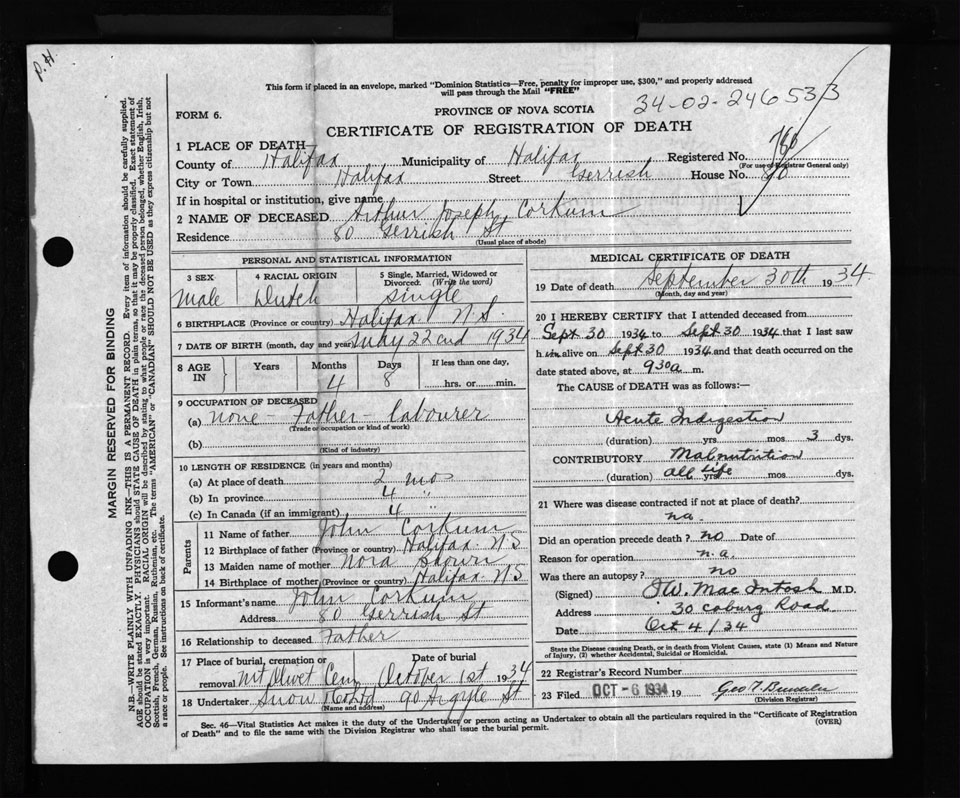 P.H.
This form if placed in an envelope, marked "Dominion Statistics—Free, penalty for improper use, $300," and properly addressed
will pass through the Mail "FREE"
PROVINCE OF NOVA SCOTIA
34-02-246533
FORM 6.
CERTIFICATE OF REGISTRATION OF DEATH
1 PLACE OF DEATH
County of Halifax Municipality of Halifax Registered No.
(For use of Registrar General only)
City or Town Halifax Street Gerrish House No. 80
If in hospital or institution, give name
2 NAME OF DECEASED Arthur Joseph Corkum
Residence 80 Gerrish St
(Usual place of abode)
PERSONAL AND STATISTICAL INFORMATION
3 SEX 4 RACIAL ORIGIN 5 Single, Married, Widowed or
Divorced. (Write the word)
Male Dutch Single
6 BIRTHPLACE (Province or country) Halifax N.S.
7 DATE OF BIRTH (month, day and year) 22nd 1934
8 AGE IN Years Months Days If less than one day,
4 8 hrs. or min.
9 OCCUPATION OF DECEASED
(a) None - Father - Labourer
(Trade or occupation or kind of work)
(b)
(Kind of industry)
10 LENGTH OF RESIDENCE (in years and months)
(a) At place of death 2 mo
(b) In province 4 "
(c) In Canada (if an immigrant) 4 "
Parents
11 Name of father John Corkum
12 Birthplace of father (Province or country) Halifax N.S
13 Maiden name of mother Nora
14 Birthplace of mother (Province or country) Halifax N.S
15 Informant's name John Corkum
Address 80 Gerrish St
16 Relationship to deceased Father
17 Place of burial, cremation or Date of burial
removal Mt Olivet Cem October 1st 1934
18 Undertaker Snow 90 Argyle St
(Name and address)
MEDICAL CERTIFICATE OF DEATH
19 Date of death September 30th 1934
(Month, day and year)
20 I HEREBY CERTIFY that I attended deceased from
Sept 30 1934 to Sept 30 1934 that I last saw
him alive on Sept 30 1934 and that death occurred on the
date stated above, at 930 a. m.
The CAUSE OF DEATH was as follows:—
Acute Indigestion
(duration) yrs mos 3 dys.
CONTRIBUTORY Malnutrition
(duration) all life yrs mos dys.
21 Where was disease contracted if not at place of death?
na.
Did an operation precede death? no Date of
Reason for operation n.a.
Was there an autopsy? no
(Signed) J.W. MacIntosh M.D.
Address 30 Coburg Road
Date Oct 4/34
State the Disease causing Death, or in death from Violent Causes, state (1) Means and Nature
of Injury, (2) whether Accidental, Suicidal or Homicidal.
22 Registrar's Record Number
23 Filed OCT - 6 1934 19 Geo
(Division Registrar)
Sec. 46—Vital Statistics Act makes it the duty of the Undertaker or person acting as Undertaker to obtain all the particulars required in the "Certificate of Registration
of Death" and to file the same with the Division Registrar who shall issue the burial permit.
(OVER)
MARGIN RESERVED FOR BINDING
N.B.—WRITE PLAINLY WITH UNFADING INK—THIS IS A PERMANENT RECORD. Every item of information should be carefully supplied.
AGE should be stated EXACTLY. PHYSICIANS should STATE CAUSE OF DEATH in plain terms, so that it may be properly classified. Exact statement of
OCCUPATION is very important. RACIAL ORIGIN will be described by stating to what people or race the deceased person belonged, whether English, Irish,
Scottish, French, German, Russian, Ruthenian, etc. The terms "AMERICAN" or "CANADIAN" SHOULD NOT BE USED as they express citizenship but not
a race or people. See instructions on back of certificate.